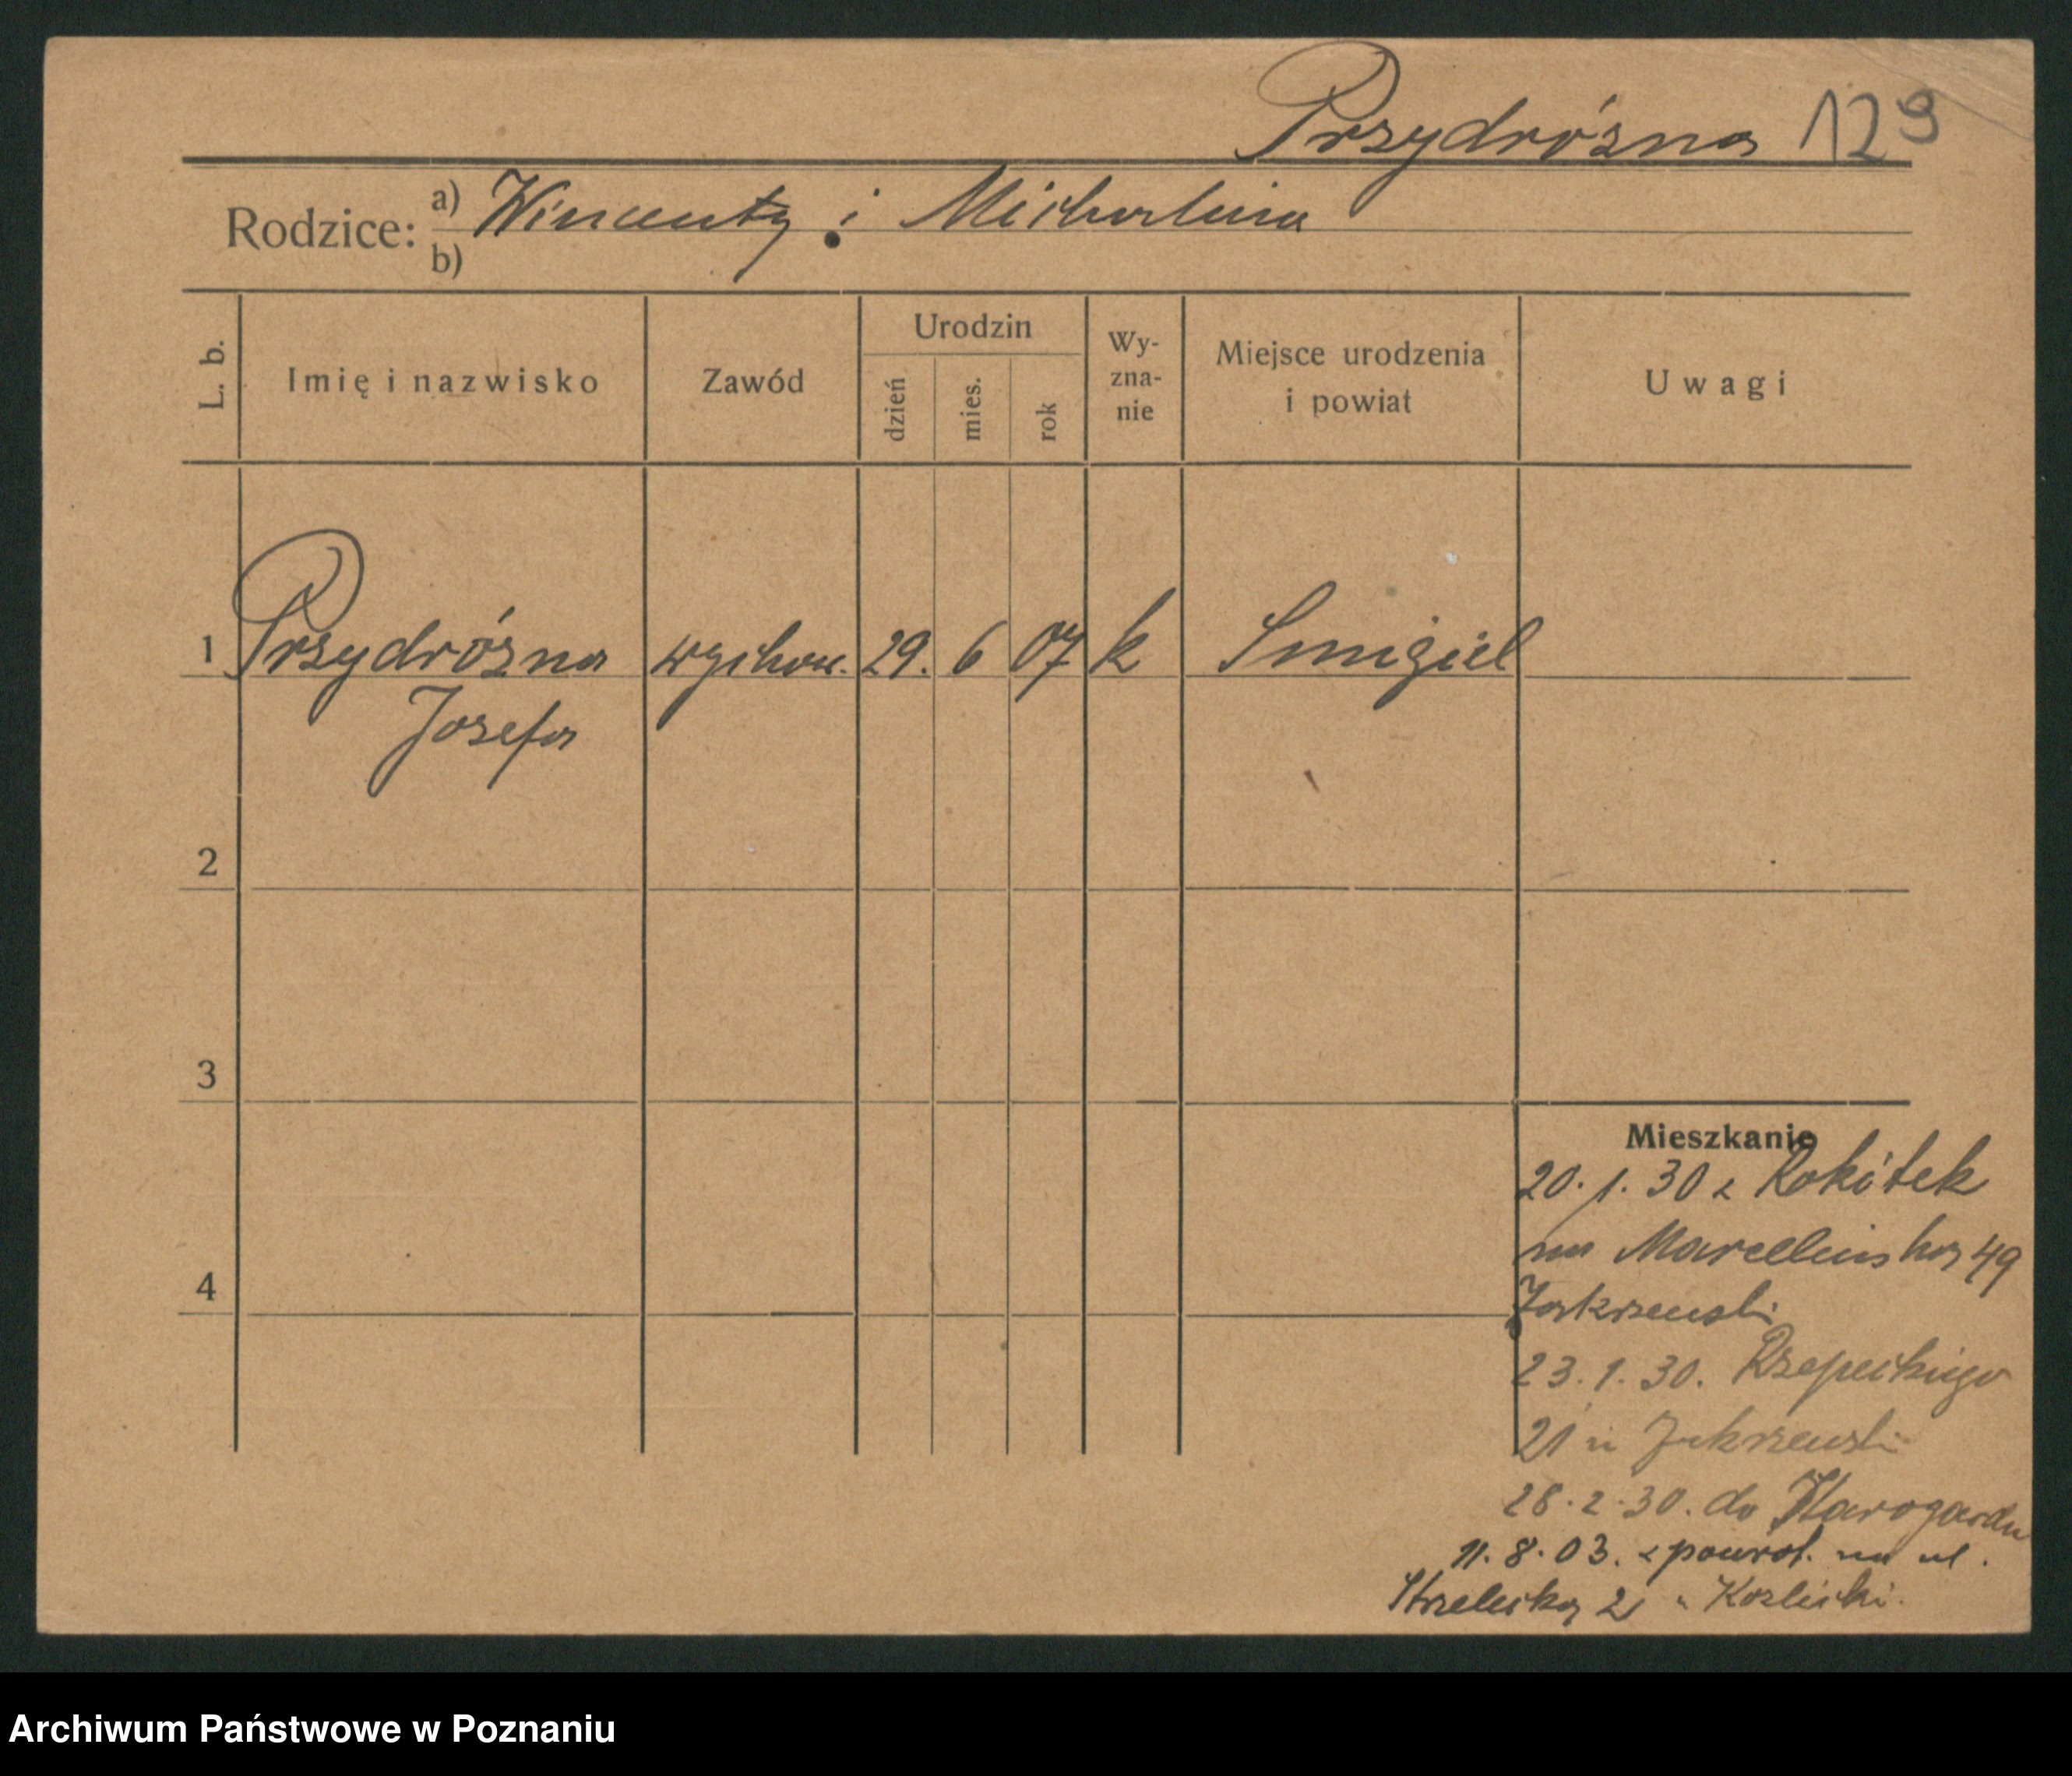 Przydróżna 129
Rodzice: a) Wincenty i Michalina
b)
L. b. Imię i nazwisko Zawód Urodzin dzień mies. rok Wy-zna-nie Miejsce urodzenia i powiat Uwagi
1 Przydróżna wychow. 29. 6 07 k Śmigiel
Józefa
2
3
4
Mieszkanie
20. 1. 30 z Rokitek
na Marcelińską 49
23. 1. 30. Rzepeckiego
21
28. 2. 30. do Starogardu
11. 8. 03. z powrot. na ul.
Strzelecką 2 Kozlicki.
Archiwum Państwowe w Poznaniu